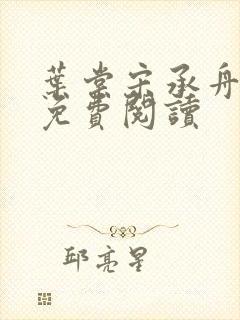 葉棠宋承舟
免費閱讀
邱亮星